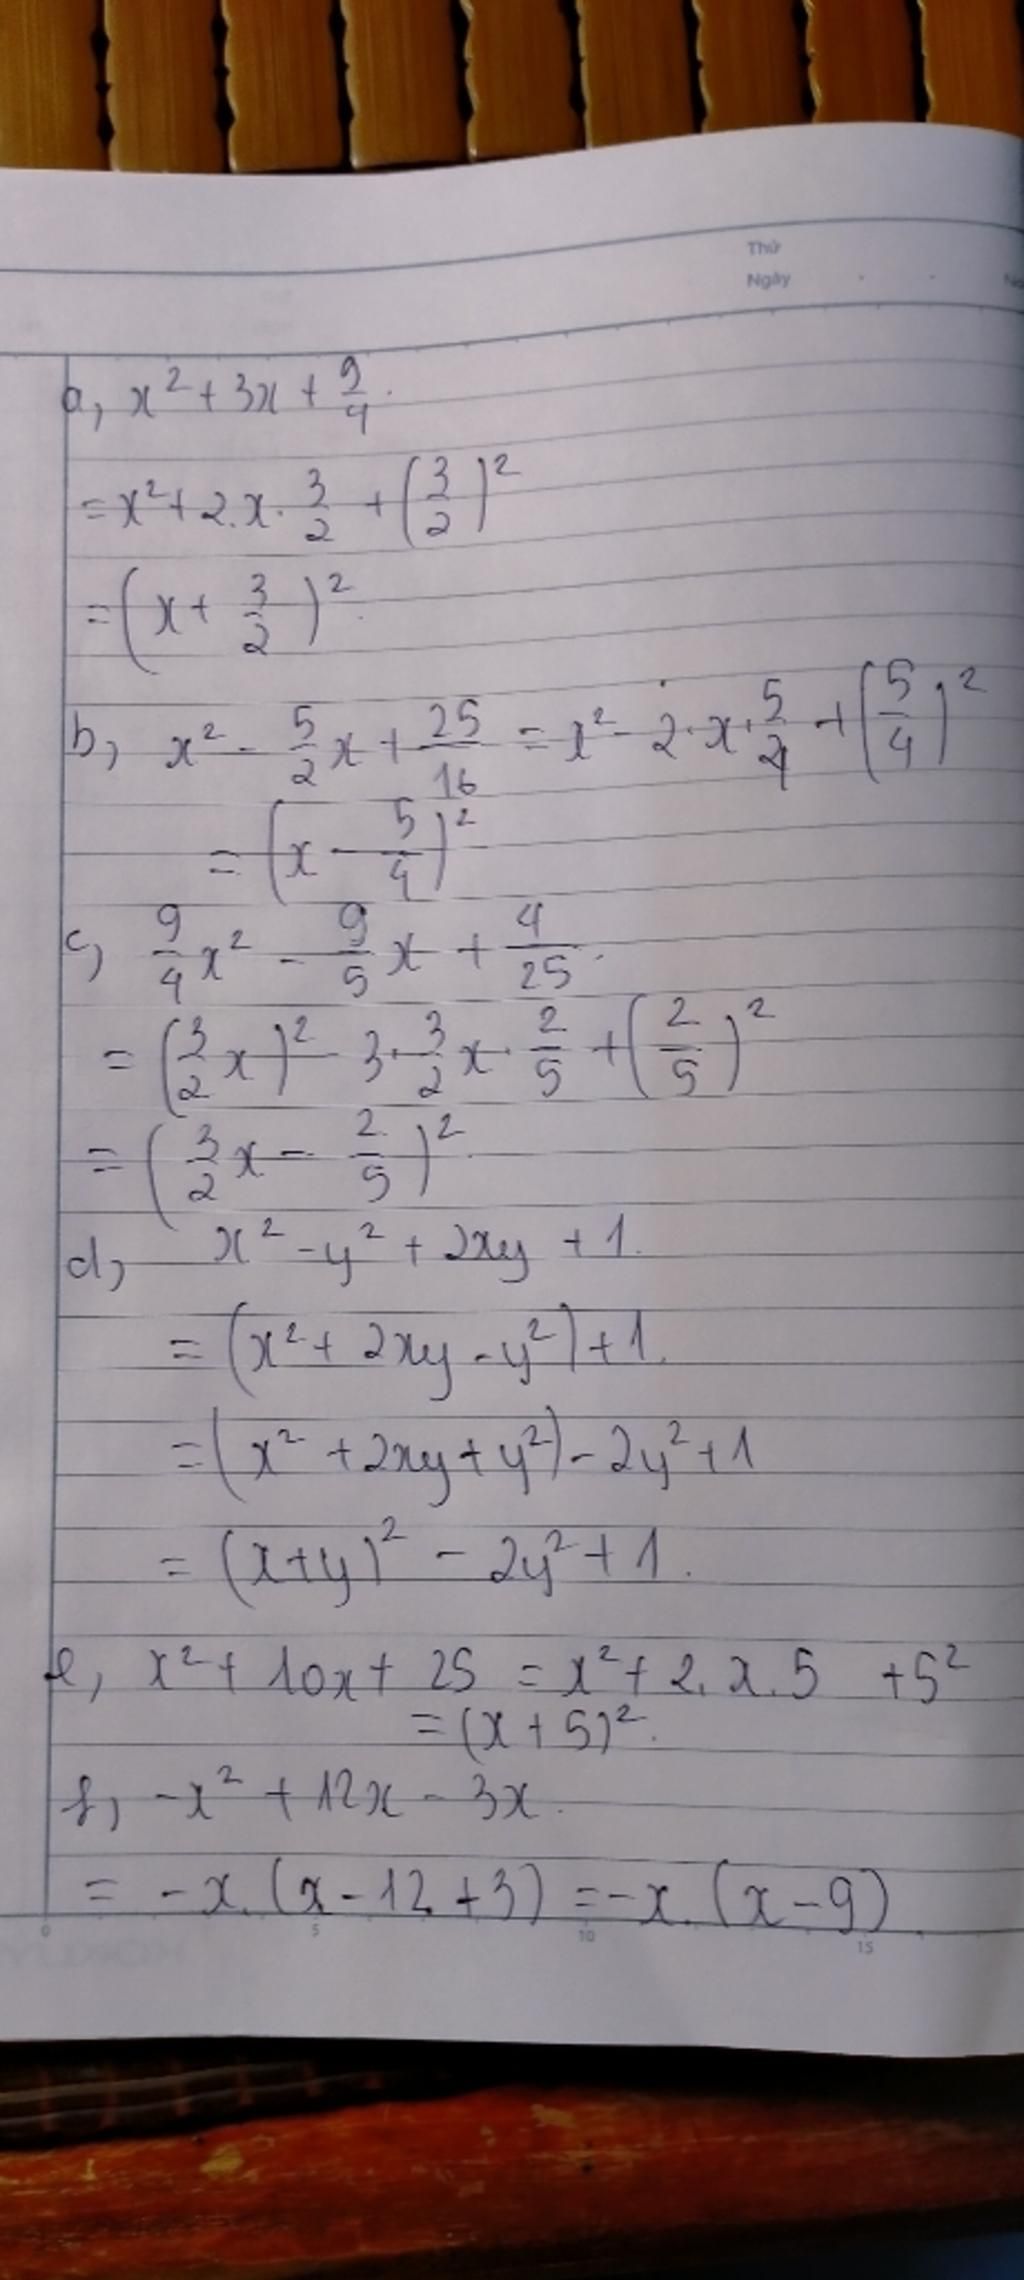 Thứ
Ngày
a, x² + 3x + 9/4.
= x² + 2.x.3/2 + (3/2)²
= (x + 3/2)².
b, x² - 5/2x + 25/16 = x² - 2.x.5/4 + (5/4)²
= (x - 5/4)²
c, 9/4x² - 9/5x + 4/25.
= (3/2x)² - 3.3/2x.2/5 + (2/5)²
= (3/2x - 2/5)².
d, x² - y² + 2xy + 1.
= (x² + 2xy - y²) + 1.
= (x² + 2xy + y²) - 2y² + 1
= (x+y)² - 2y² + 1.
e, x² + 10x + 25 = x² + 2.x.5 + 5²
= (x + 5)².
f, -x² + 12x - 3x.
= -x.(x - 12 + 3) = -x.(x - 9)
0 5 10 15